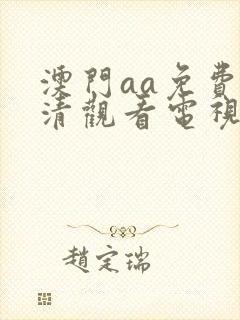 澳門aa免費
清觀看電視
趙定瑞